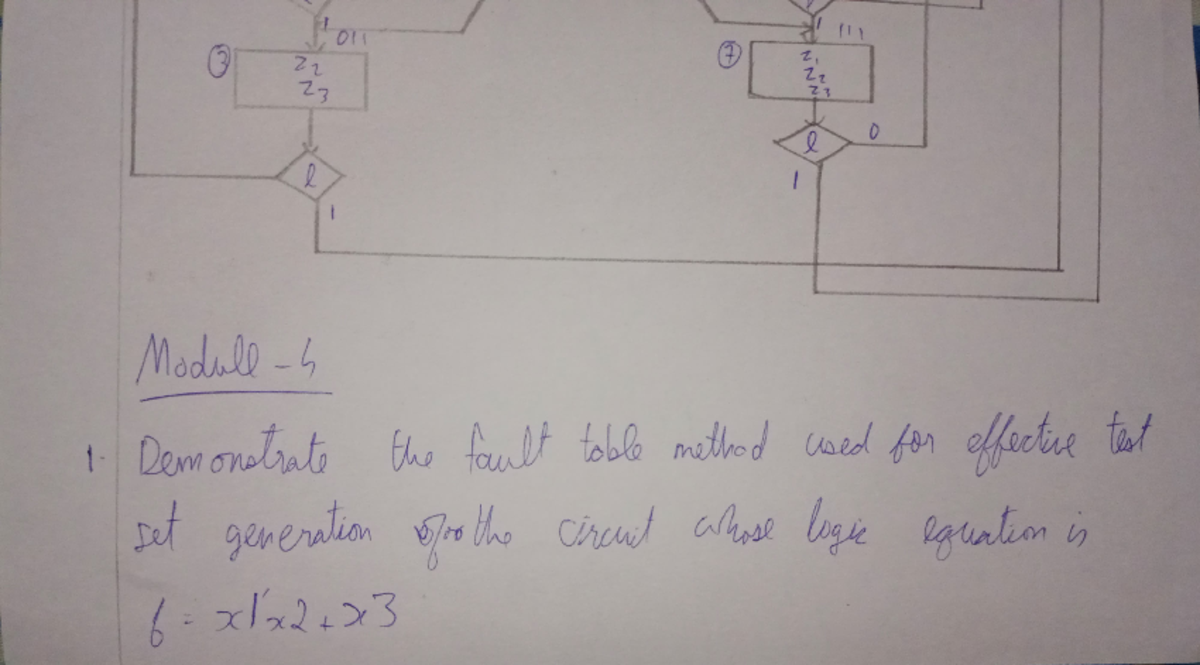 1 1
011 111
3 z2 z3 7 z1 z2 z3
l 0
l
1
1
Module - 4
1. Demonstrate the fault table method used for effective test
set generation the circuit whose logic equation is
f = x1'x2 + x3